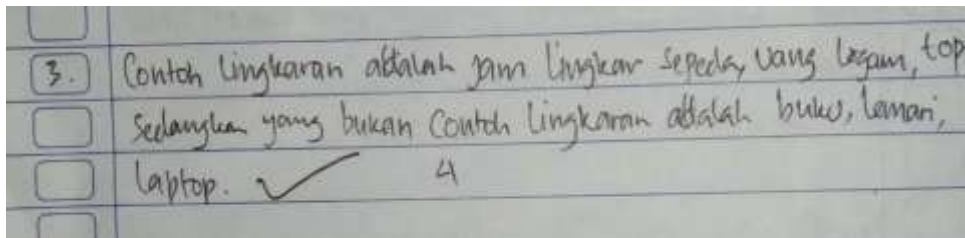 3. Contoh lingkaran adalah jam lingkar sepeda, uang logam, top
Sedangkan yang bukan Contoh lingkaran adalah buku, lemari,
laptop. ✓ 4